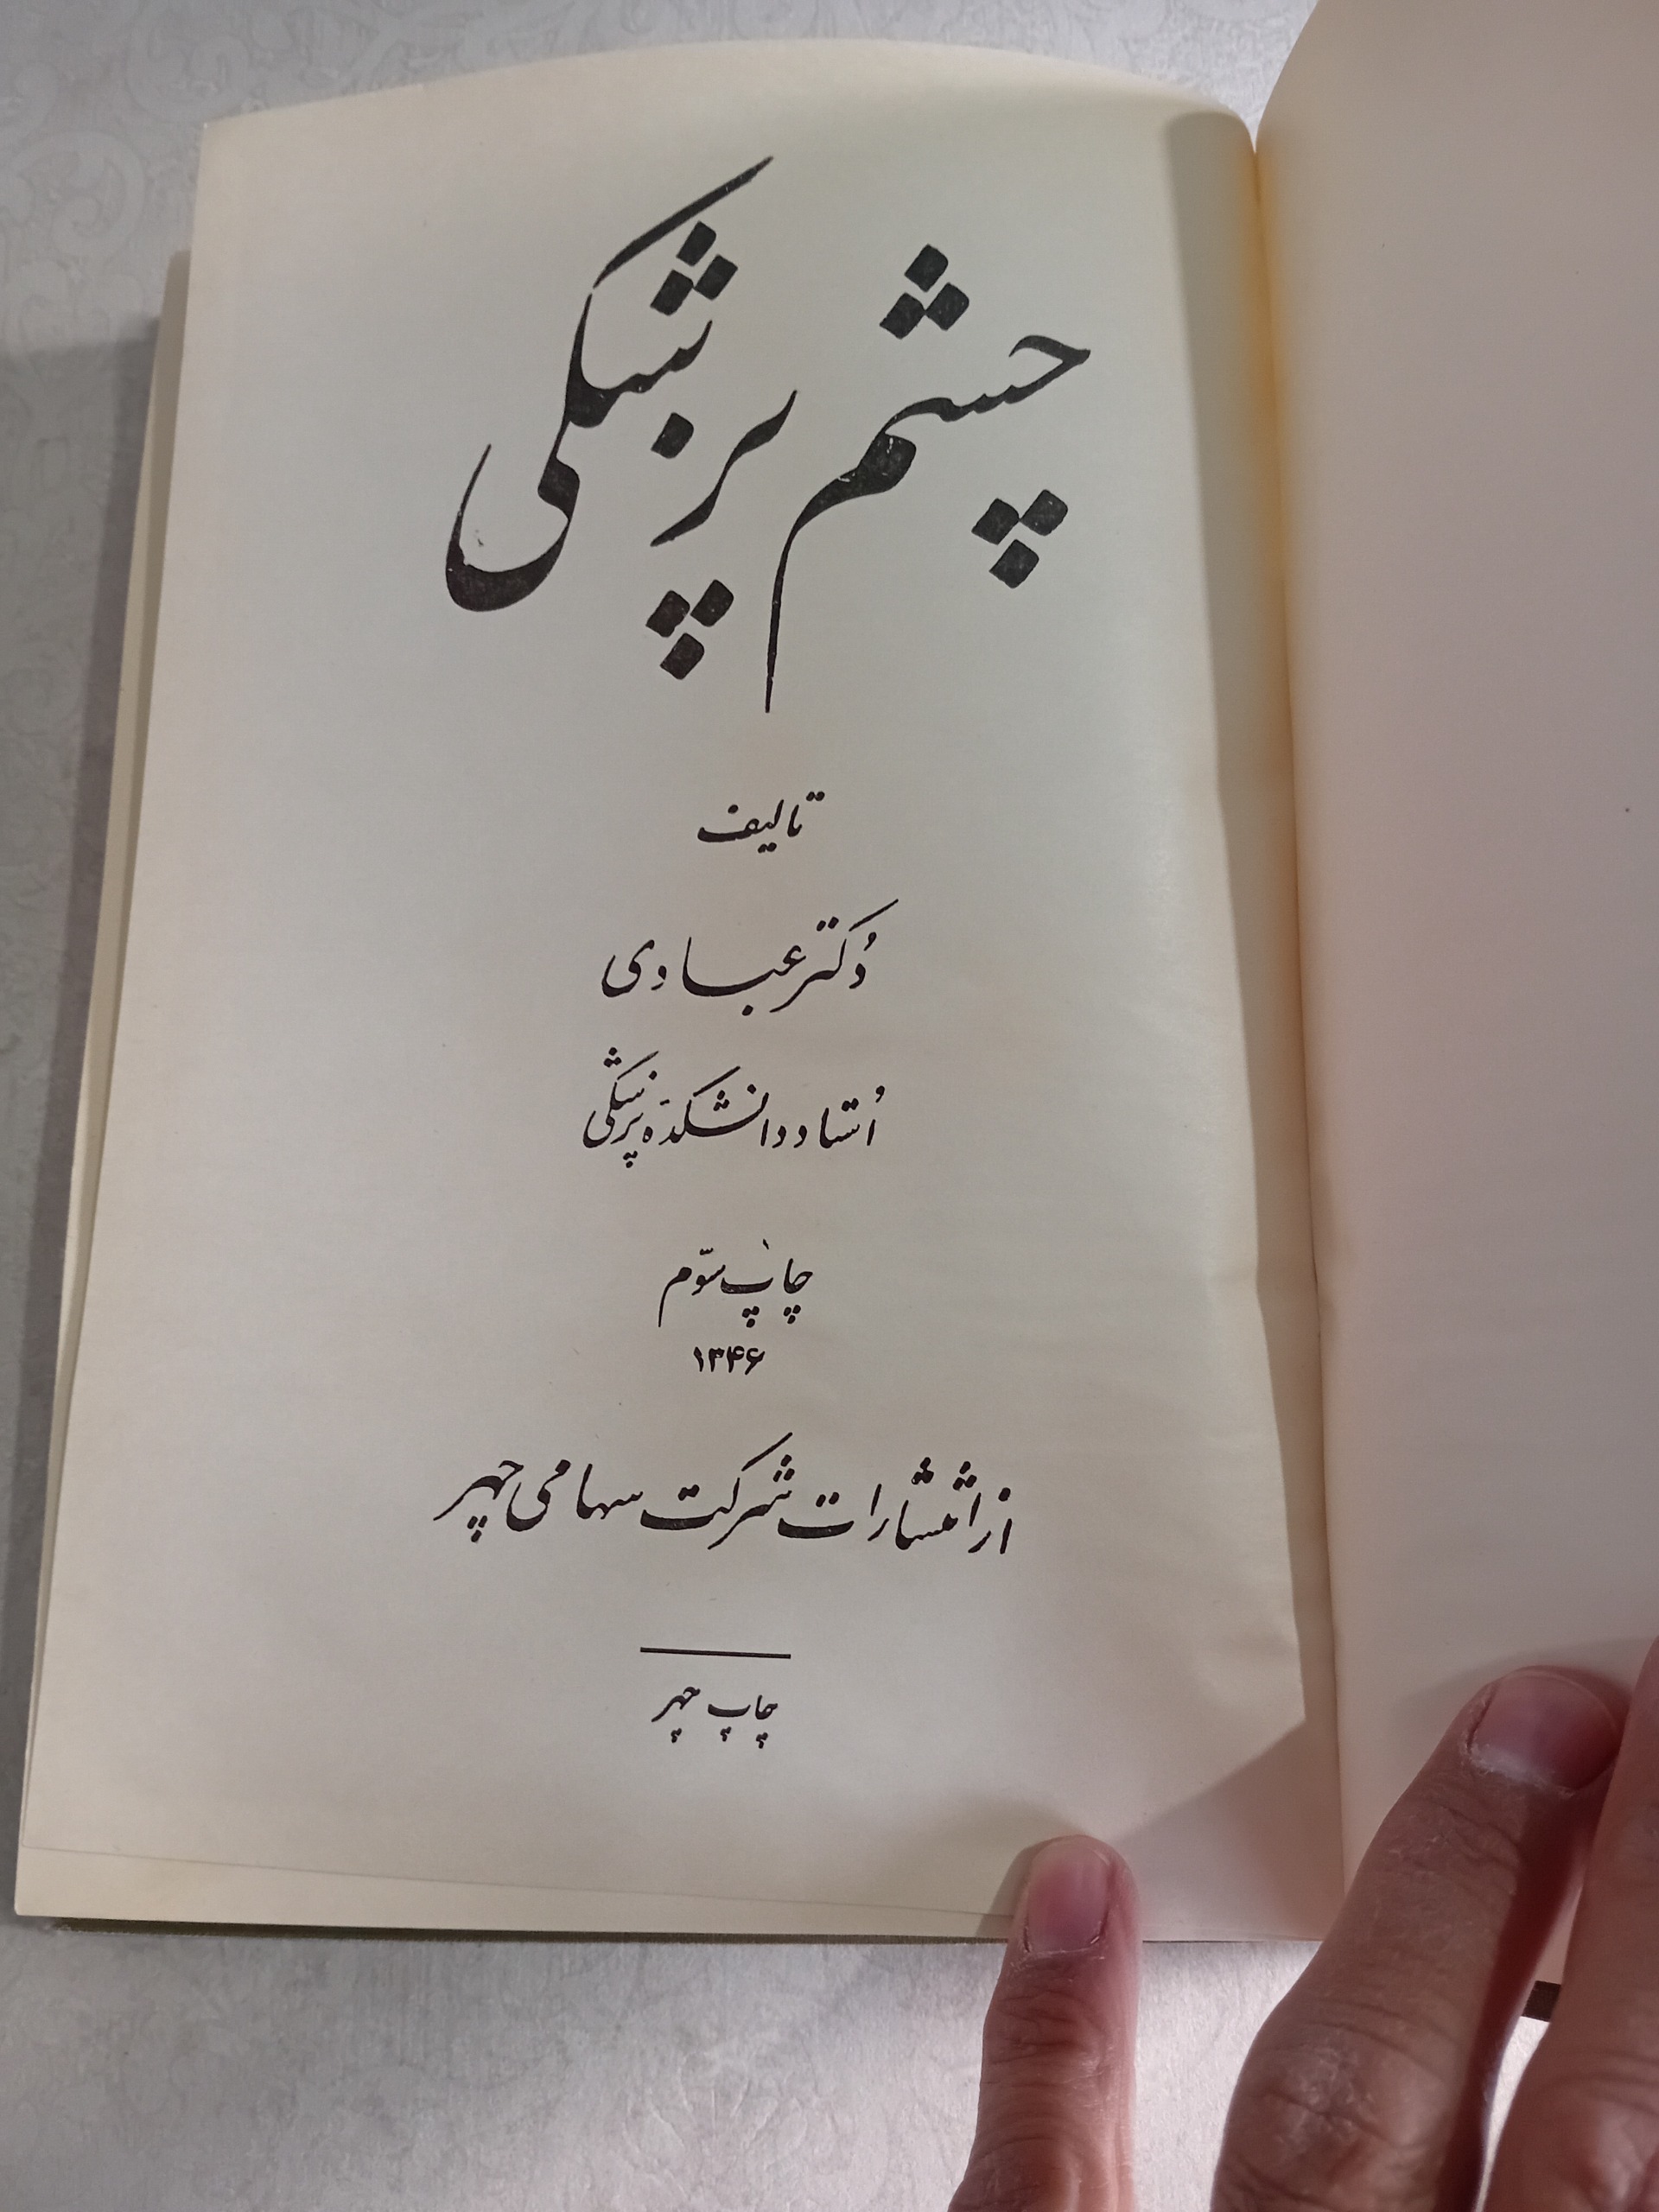 چشم پزشکی
تالیف
دُکتر عبادی
اُستاد دانشکدَه پزشکی
چاپ سوّم
۱۳۴۶
از انتشارات شرکت سهامی چهر
چاپ چهر